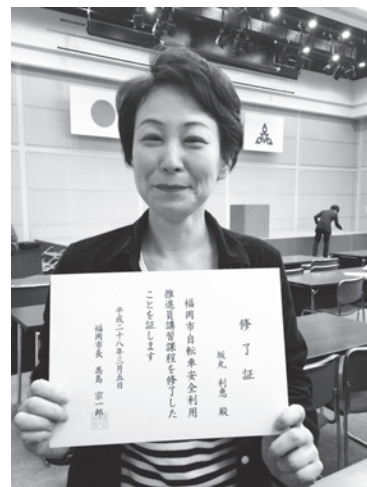 修了証
坂丸 利恵 殿
福岡市自転車安全利用
推進員講習課程を修了した
ことを証します
平成二十八年三月五日
福岡市長 高島 宗一郎